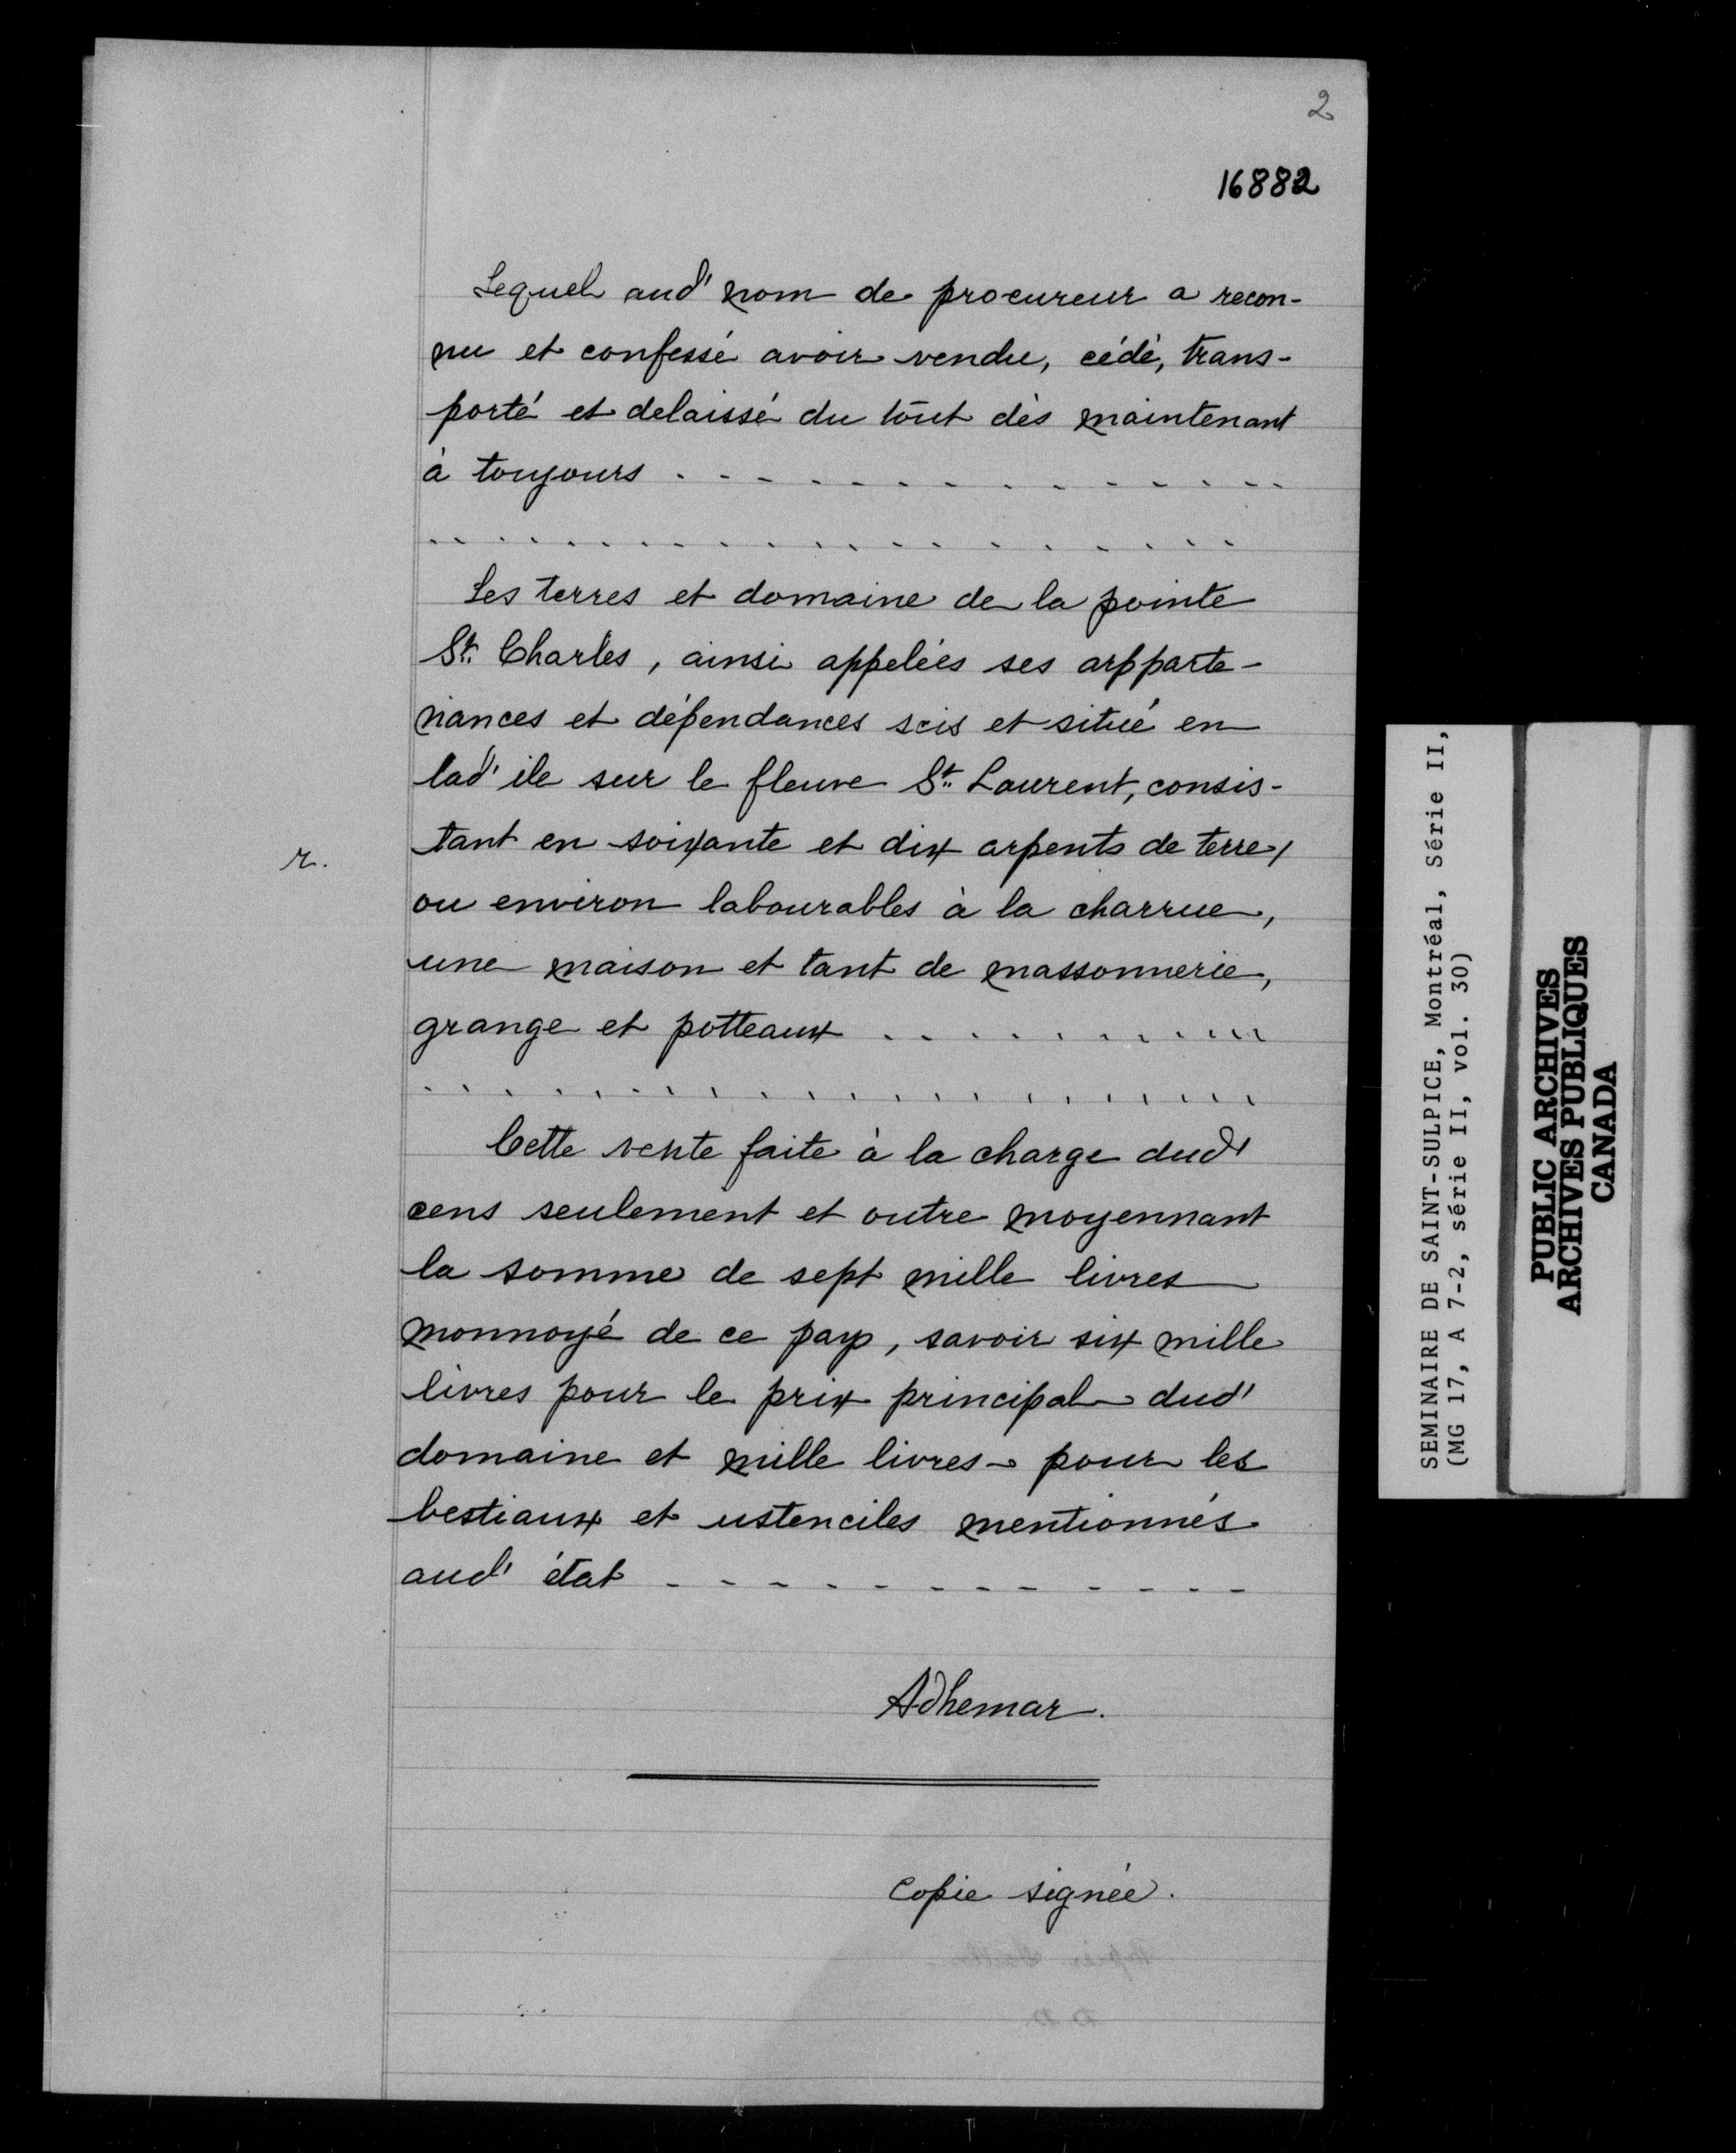 2
16882
Lequel aud' nom de procureur a recon-
nu et confessé avoir vendu, cédé, trans-
porté et delaissé du tout dès maintenant
à toujours . - - - - - - - - - - - - -
. . . . . . . . . . . . . . . . . . . .
Les terres et domaine de la pointe
St. Charles, ainsi appelées ses apparte-
nances et dépendances scis et situé en
lad' ile sur le fleuve St. Laurent, consis-
tant en soixante et dix arpents de terre/
r.
ou environ labourables à la charrue,
une maison et tant de massonnerie,
grange et potteaux . . . . . . . . . . .
. . . . . . . . . . . . . . . . . . . .
Cette vente faite à la charge dud'
cens seulement et outre moyennant
la somme de sept mille livres
monnoyé de ce pays, savoir six mille
livres pour le prix principal dud'
domaine et mille livres pour les
bestiaux et ustenciles mentionnés
aud' état - - - - - - - - - - - - -
Adhemar.
Copie signée.
SEMINAIRE DE SAINT-SULPICE, Montréal, Série II,
(MG 17, A 7-2, série II, vol. 30)
PUBLIC ARCHIVES
ARCHIVES PUBLIQUES
CANADA